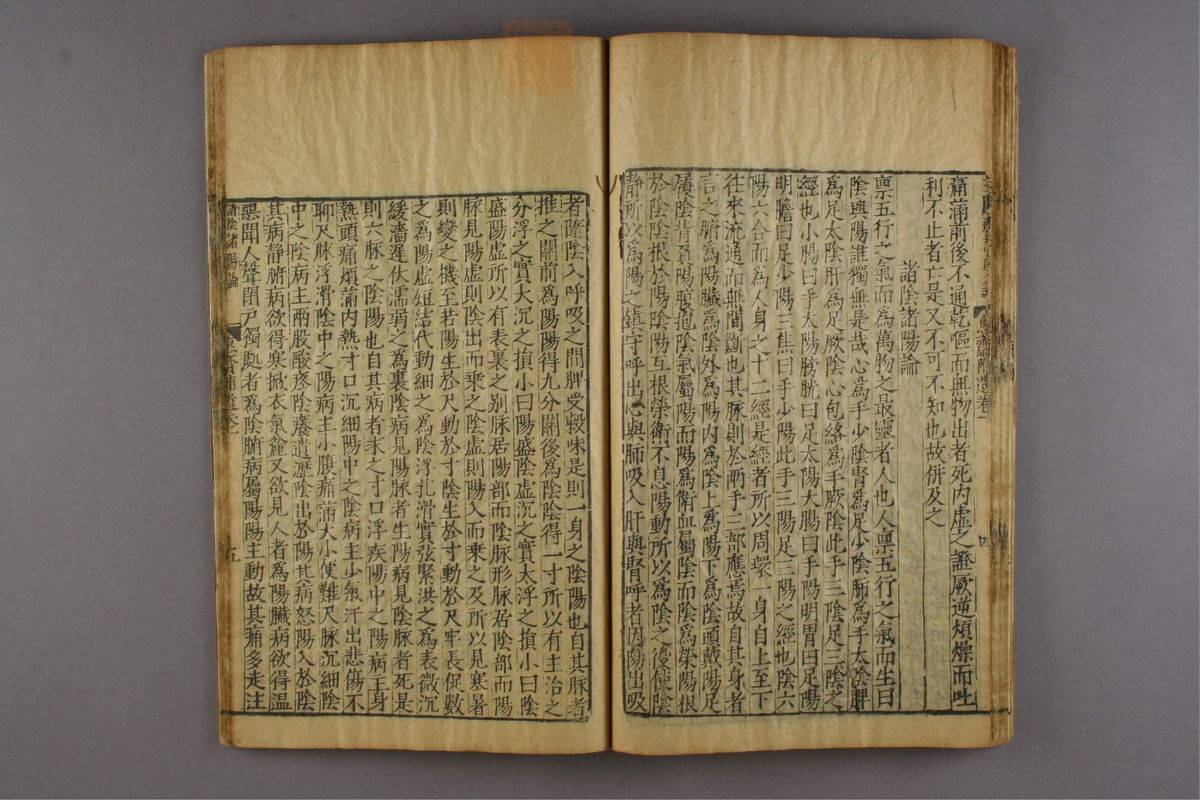 痛滿前後不通乾嘔而無物出者死内虛之證厥逆煩燥而吐
利不止者亡是又不可不知也故併及之
諸陰諸陽論
禀五行之氣而為萬物之最靈者人也人禀五行之氣而生曰
陰與陽誰獨無是哉心為手少陰腎為足少陰肺為手太陰脾
為足太陰肝為足厥陰心包絡為手厥陰此手三陰足三陰之
經也小腸曰手太陽膀胱曰足太陽大腸曰手陽明胃曰足陽
明膽曰足少陽三焦曰手少陽此手三陽足三陽之經也陰六
陽六合而為人身之十二經是經者所以周環一身自上至下
往來流通而無間斷也其脉則於兩手三部應焉故自其身者
言之腑為陽臟為陰外為陽内為陰上為陽下為陰頭戴陽足
履陰背負陽腹抱陰氣屬陽而陽為衛血屬陰而陰為榮陽根
於陰陰根於陽陰陽互根榮衛不息陽動所以為陰之役使陰
靜所以為陽之鎮守呼出心與肺吸入肝與腎呼者因陽出吸
者隨陰入呼吸之間脾受穀味是則一身之陰陽也自其脉者
推之關前為陽陽得九分關後為陰陰得一寸所以有主治之
分浮之實大沉之損小曰陽盛陰虛沉之實大浮之損小曰陰
盛陽虛所以有表裏之别脉居陽部而陰脉形脉居陰部而陽
脉見陽虛則陰出而乘之陰虛則陽入而乘之及所以見寒暑
則變之機至若陽生於尺動於寸陰生於寸動於尺牢長促數
之為陽虛短結代動細之為陰浮芤滑實弦緊洪之為表微沉
緩濇遲伏濡弱之為裏陰病見陽脉者生陽病見陰脉者死是
則六脉之陰陽也自其病者求之寸口浮疾陽中之陽病主身
熱頭痛煩滿内熱寸口沉細陽中之陰病主少氣汗出悲傷不
聊尺脉浮滑陰中之陽病主小腹痛滿大小便難尺脉沉細陰
中之陰病主兩股酸疼陰癢遺瀝陰出於陽其病怒陽入於陰
其病靜腑病欲得寒掀衣氣麄又欲見人者為陽臟病欲得溫
惡聞人聲閉戶獨處者為陰腑病屬陽陽主動故其痛多走注
諸陰諸陽論
五